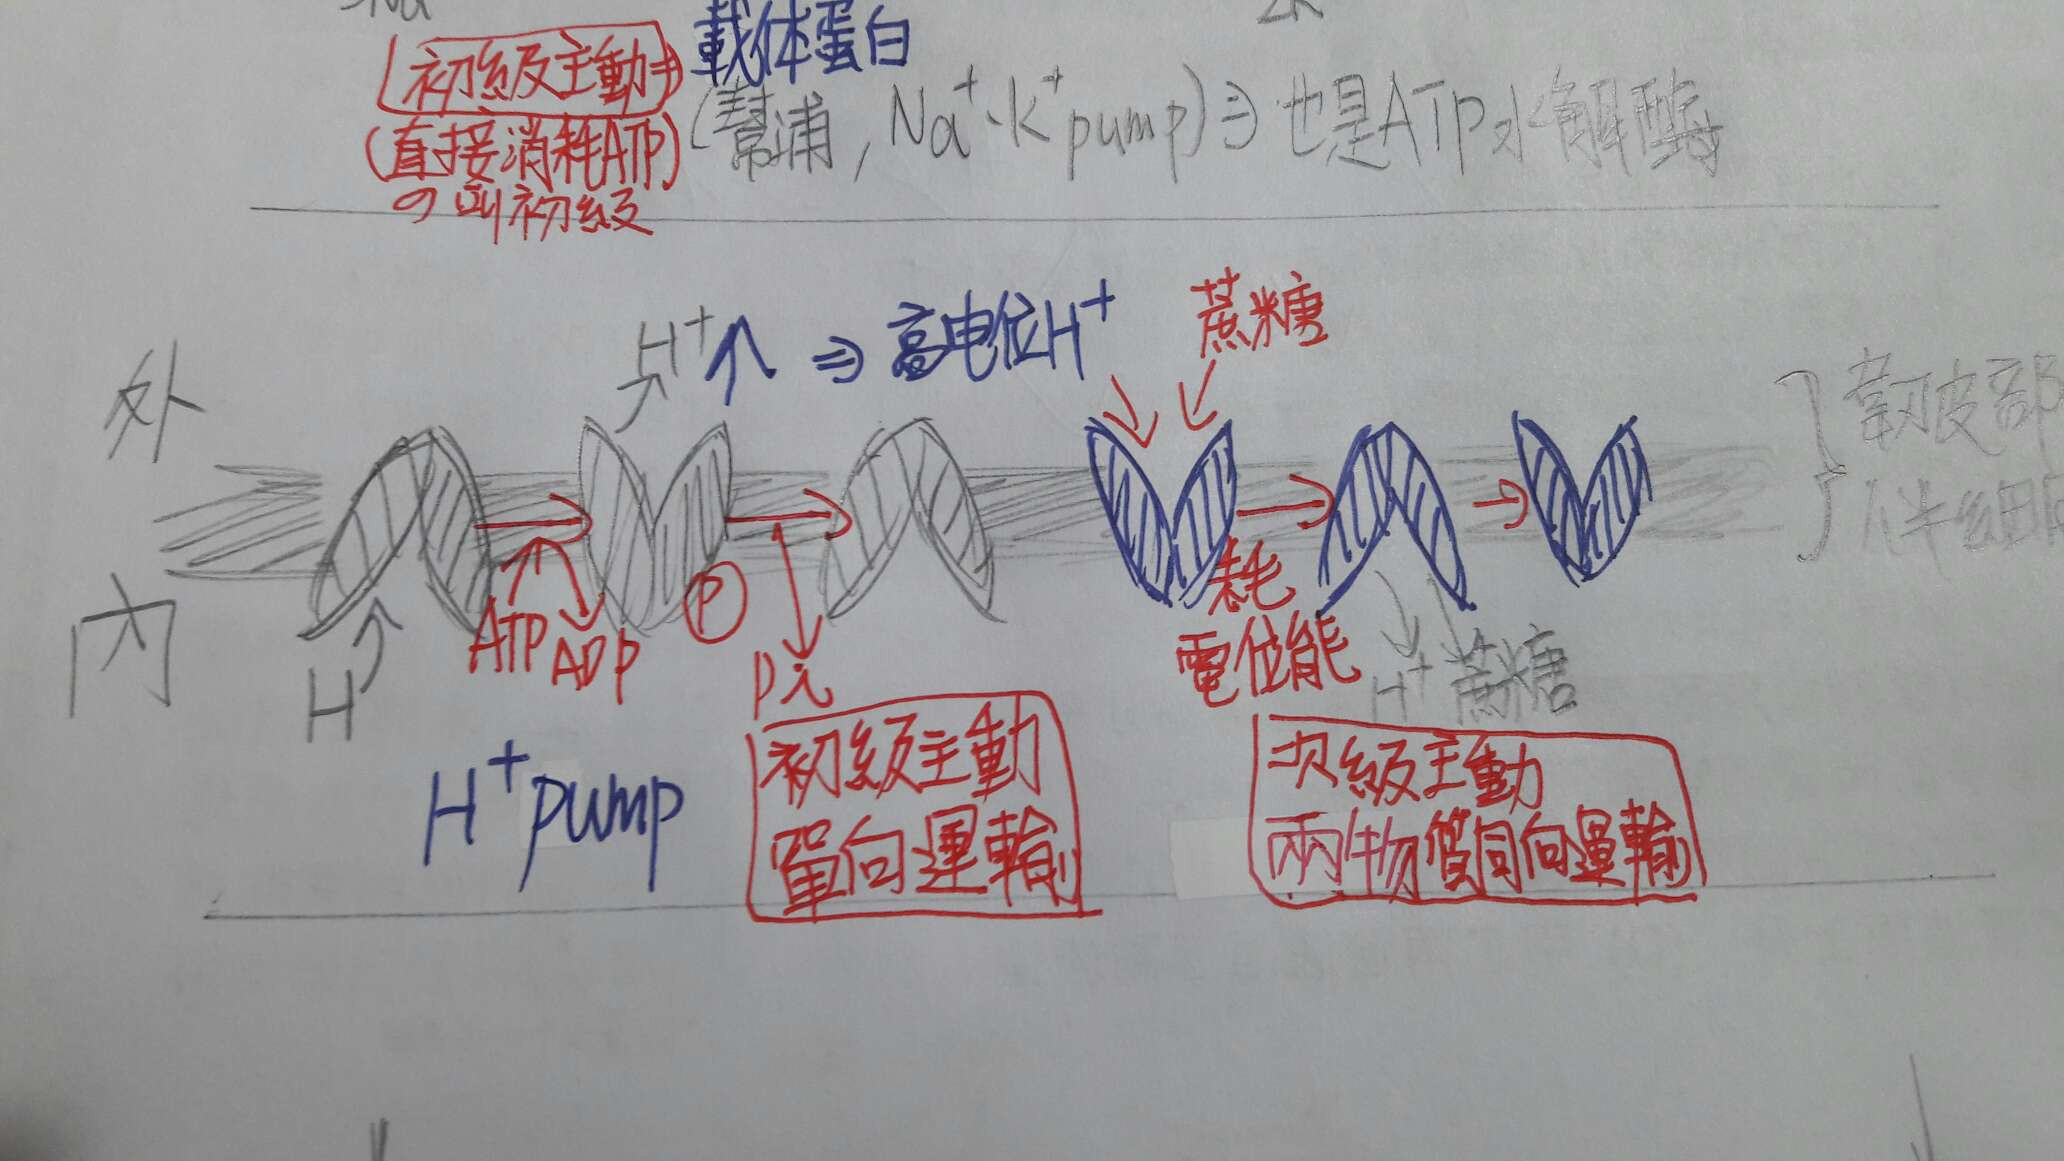 3Na
2K
初級主動 ⇒ 載体蛋白
(直接消耗ATP) (幫浦, Na⁺-K⁺ pump) ⇒ 也是ATP水解酶
の叫初級
H⁺↑ ⇒ 高电位H⁺
蔗糖
外
韌皮部
伴細
內
H
ATP
ADP
P
Pi
耗
電位能
H⁺ 蔗糖
H⁺ pump
初級主動
單向運輸
次級主動
兩物質同向運輸